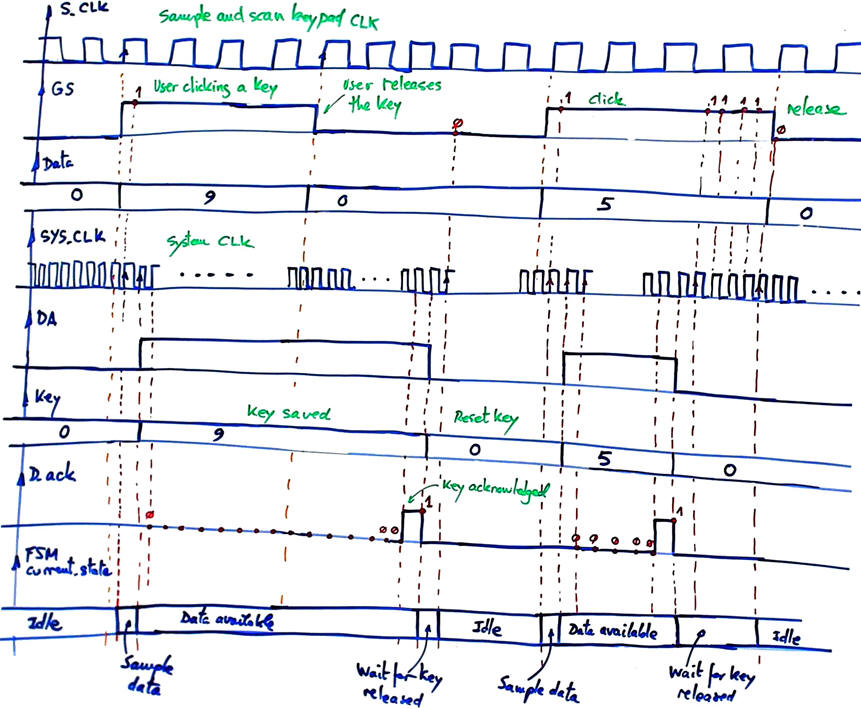 S_CLK
Sample and scan keypad CLK
GS
1
User clicking a key
User releases
the key
0
1
click
1 1 1 1
release
0
Data
0
9
0
5
0
SYS_CLK
System CLK
DA
Key
Key saved
Reset key
0
9
0
5
0
D_ack
Key acknowledged
0
0 0
1
0 0 0 0 0
1
FSM
current_state
Idle
Data available
Idle
Data available
Idle
Sample
data
Wait for key
released
Sample data
Wait for key
released